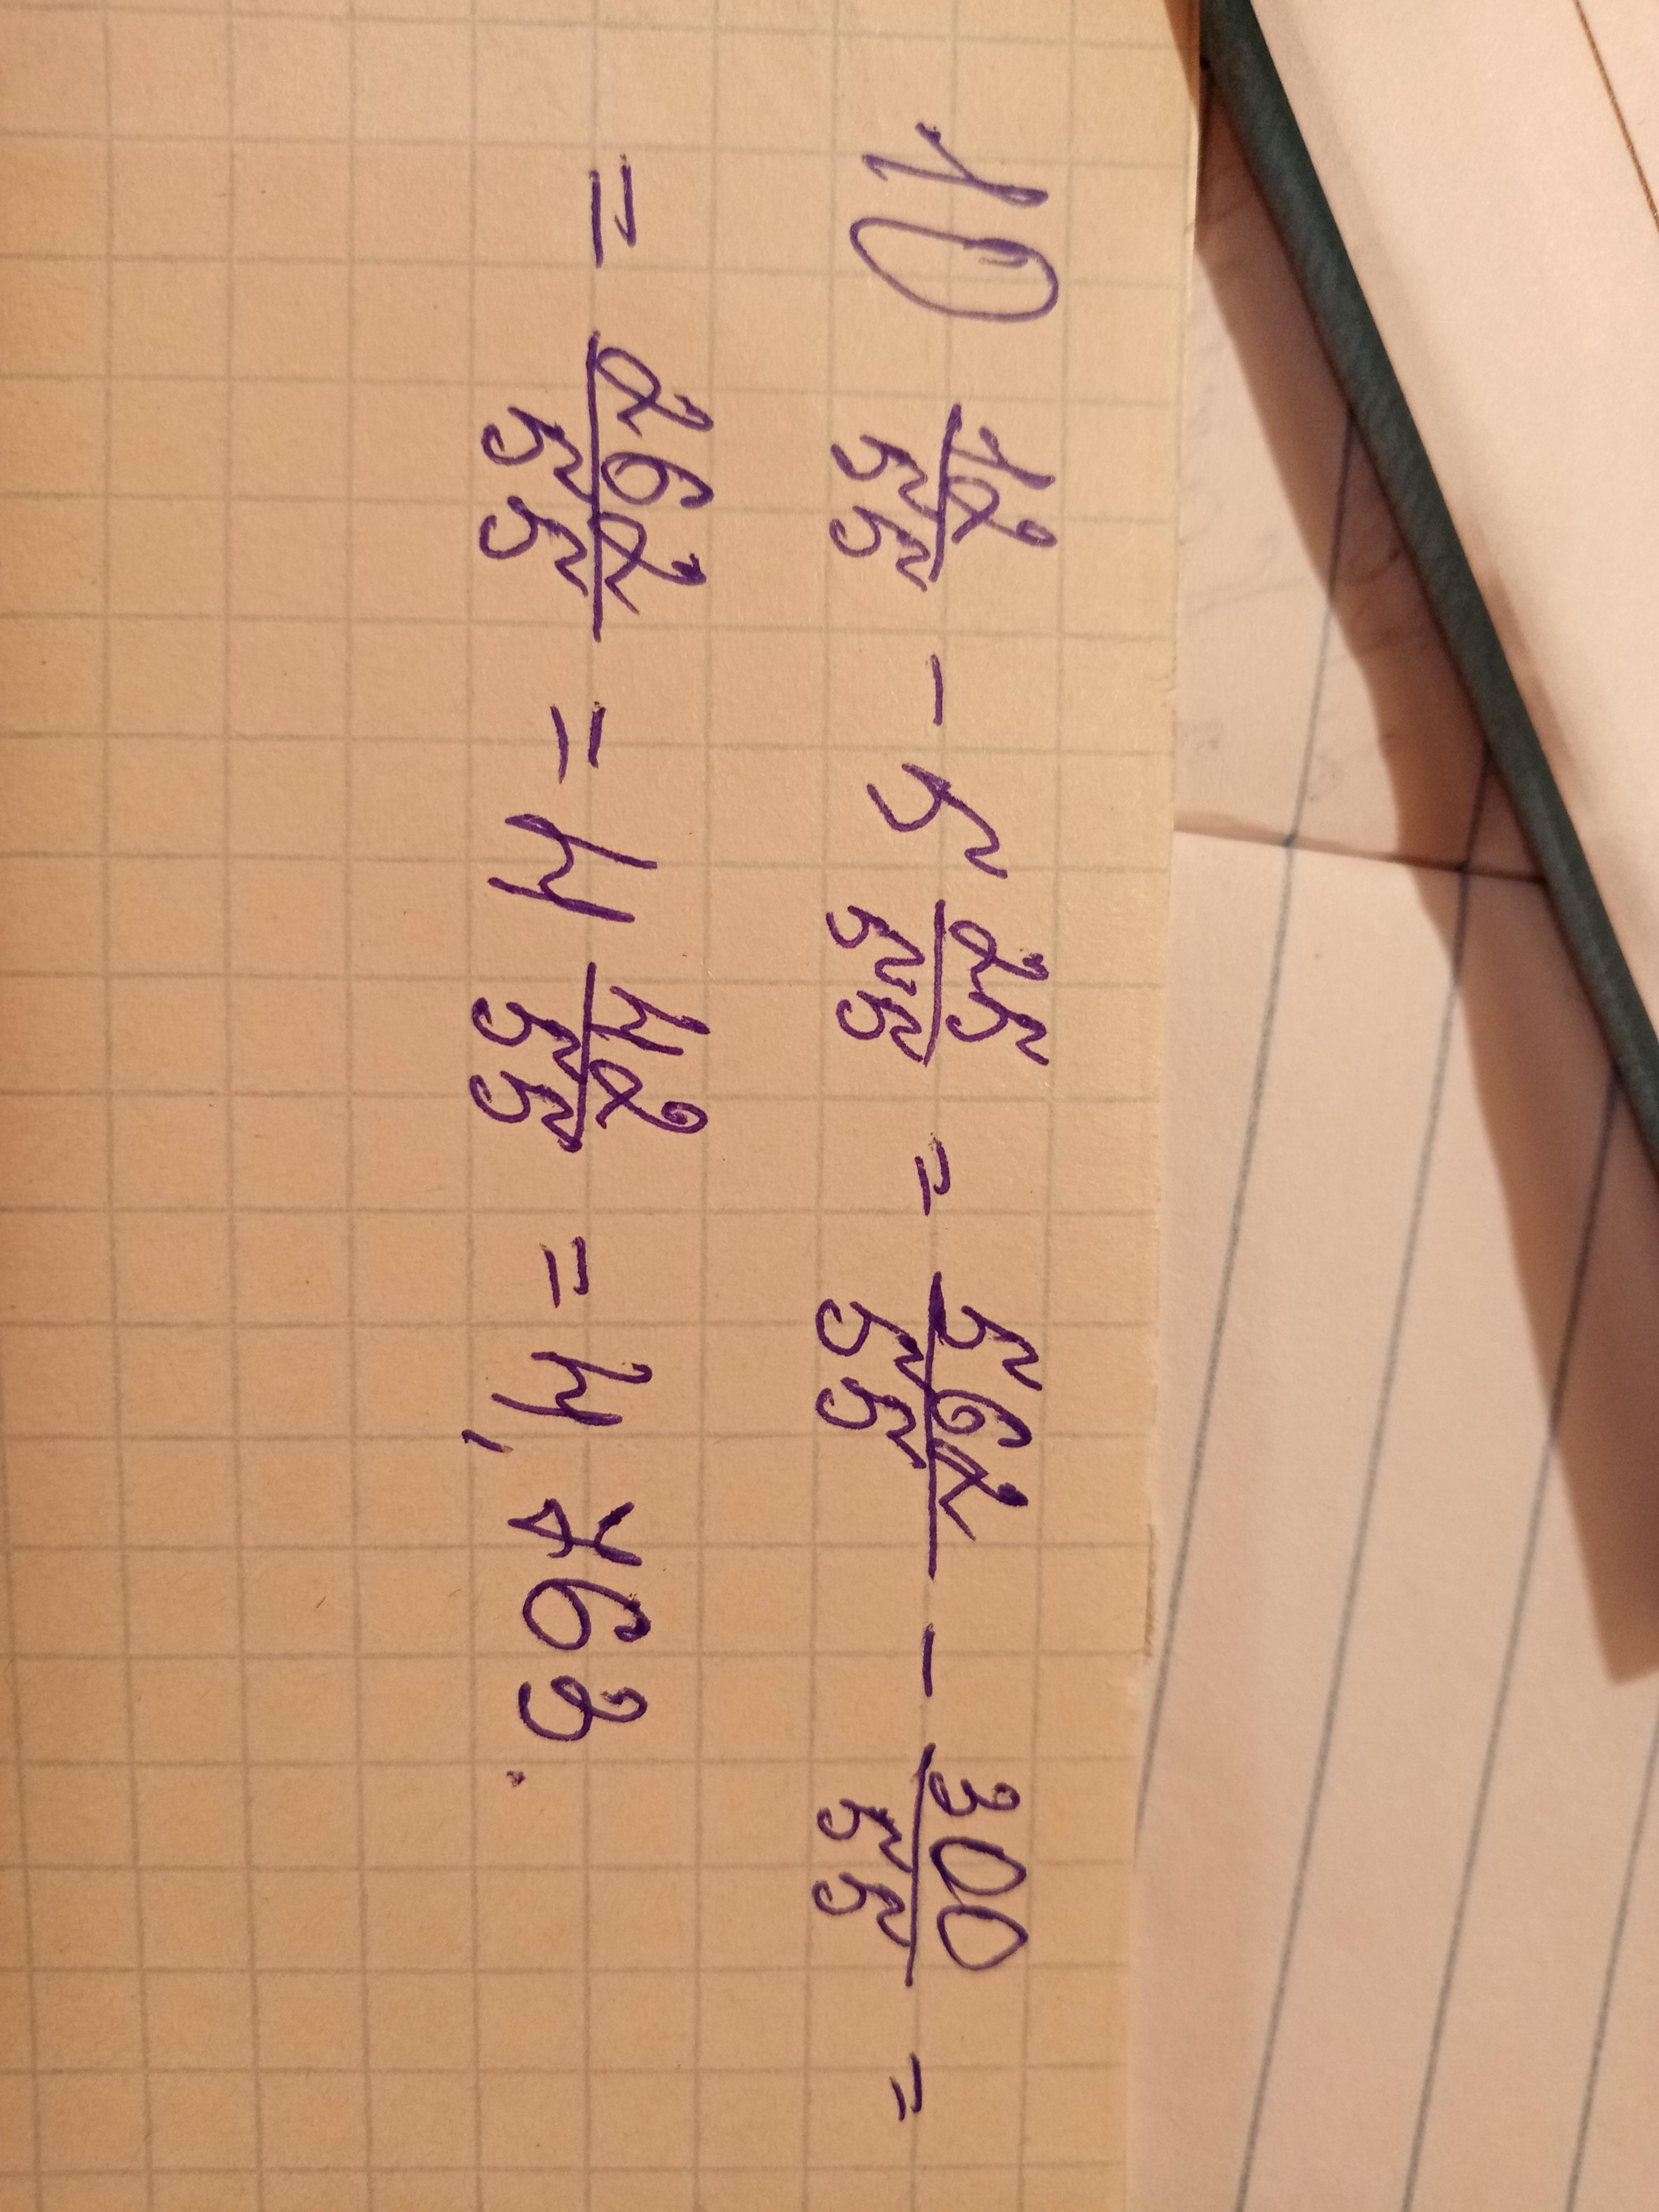 10 12/55 - 5 25/55 = 562/55 - 300/55 =
= 262/55 = 4 42/55 = 4,763.